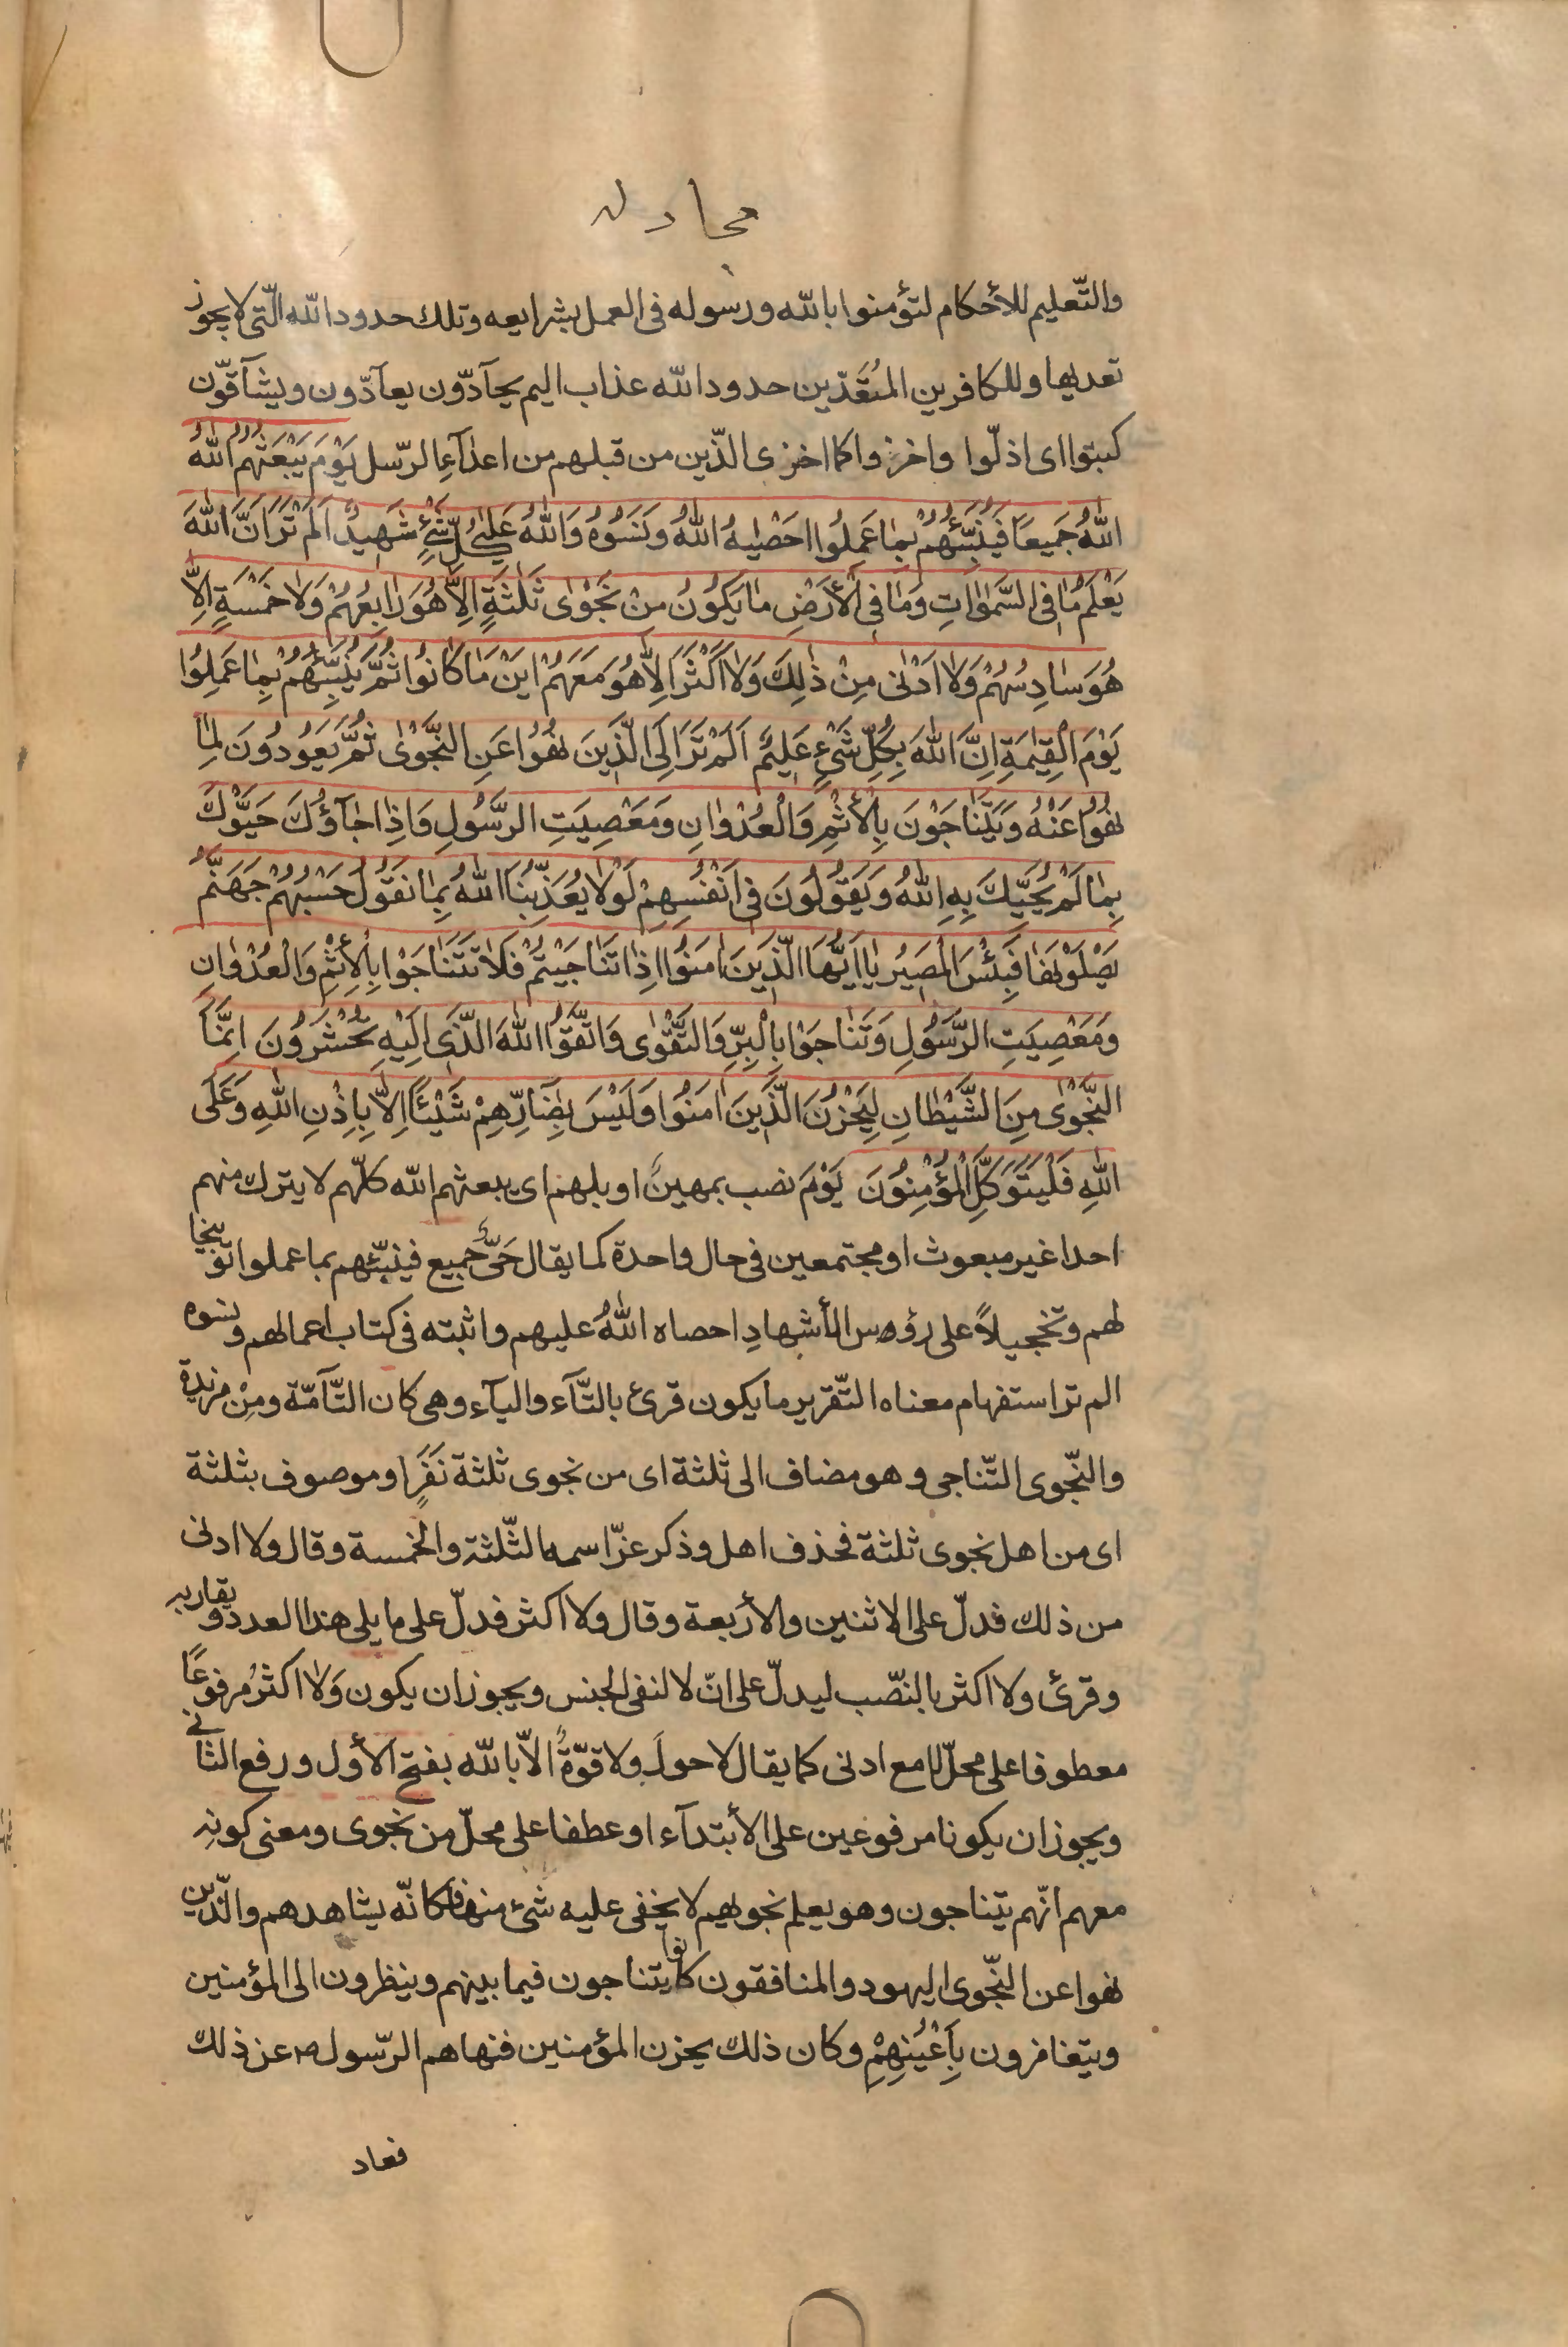 مجادله
والتّعليم للأحكام لتؤمنوا بالله ورسوله فى العمل بشرايعه وتلك حدود الله الّتى لا يجوز
تعديها وللكافرين المتعَدّين حدود الله عذاب اليم يحآدّون يعآدّون ويشآقّون
كبتوا اى اذلّوا واخزوا كما اخزى الّذين من قبلهم من اعدآء الرّسل يَوْمَ يَبْعَثُهُمُ اللهُ
اللهُ جَميعًا فَيُنَبِّئُهُمْ بِمٰا عَمِلُوا احَصْيٰهُ اللهُ وَنَسُوُهُ وَاللهُ عَلىٰ كُلِّ شَئٍْ شَهيٌد اَلَمْ تَرَ اَنَّ اللهَ
يَعْلَمُ مٰا فِى السَّمٰوٰاتِ وَمٰا فِى الْأَرْضِ مٰا يَكوُنُ مِنْ نَجْوٰى ثَلٰثَةٍ اِلاّٰ هُوَ رٰابِعُهُمْ وَلاٰ خَمْسَةٍ اِلاّٰ
هُوَ سٰادِسُهُمْ وَلاٰ اَدْنٰى مِنْ ذٰلِكَ وَلاٰ اَكْثَرَ اِلاّٰ هُوَ مَعَهُمْ اَيْنَ مٰا كٰانوُا ثُمَّ يُنَبِّئُهُمْ بِمٰا عَمِلوُا
يَوْمَ الْقِيٰمَةِ اِنَّ اللهَ بِكُلِّ شَىْءٍ عَليٌم اَلَمْ تَرَ اِلَى الَّذينَ نُهُوا عَنِ النَّجْوٰى ثُمَّ يَعُودُونَ لِمٰا
نُهُوُا عَنْهُ وَيَتَنٰاجَوْنَ بِالْأِثْمِ وَالْعُدْوٰانِ وَمَعْصِيَتِ الرَّسُولِ وَاِذٰا جٰآؤُكَ حَيَّوْكَ
بِمٰا لَمْ يُحَيِّكَ بِهِ اللهُ وَيَقوُلُونَ فى اَنْفُسِهِمْ لَوْلاٰ يُعَذِّبُنَا اللهُ بِمٰا نَقوُلُ حَسْبُهُمْ جَهَنَّمُ
يَصْلَوْنَهٰا فَبِئْسَ الْمَصيرُ يٰا اَيُّهَا الَّذينَ اٰمَنوُا اِذٰا تَنٰاجَيْتُمْ فَلاٰ تَتَنٰاجَوْا بِالْأِثْمِ وَالْعُدْوٰانِ
وَمَعْصِيَتِ الرَّسُولِ وَتَنٰاجَوْا بِالْبِرِّ وَالتَّقْوٰى وَاتَّقُوا اللهَ الَّذى اِلَيْهِ تُحْشَرُونَ اِنَّمَا
النَّجْوٰى مِنَ الشَّيْطٰانِ لِيَحْزُنَ الَّذينَ اٰمَنُوا وَلَيْسَ بِضٰآرِّهِمْ شَيْئًا اِلاّٰ بِاِذْنِ اللهِ وَعَلَى
اللهِ فَلْيَتَوَكَّلِ الْمُؤْمِنُونَ يَوْمَ نصب بمهين او بلهم اى يبعثهم الله كلّهم لا يترك منهم
احدا غير مبعوث او مجتمعين فى حال واحدة كما يقال حَىّ جميع فينبّئهم بما عملوا توبيخا
لهم وتخجيلاً على رؤس الأشهادِ احصاه اللهُ عليهم واثبته فى كتاب اعمالهم ونسوه
الم تر استفهام معناه التّقرير ما يكون قرئ بالتّآء واليآء وهى كان التّآمّة ومِنْ مزيدة
والنّجوى التّناجى وهو مضاف الى ثلثة اى من نجوى ثلثة نَفَرٍ او موصوف بثلثة
اى من اهل نجوى ثلثة فحذف اهل وذكر عزّ اسمه الثّلثة والخمسة وقال ولا ادنى
من ذلك فدلّ على الاثنين والأربعة وقال ولا اكثر فدلّ على ما يلى هذا العدد ويقاربه
وقرئ ولا اكثر بالنّصب ليدلّ على انّ لا لنفى الجنس ويجوز ان يكون وَلاٰ اكثرُ مرفوعًا
معطوفا على محلّ لا مع ادنى كما يقال لا حولَ ولا قوّةٌ الاّ بالله بفتح الأول ورفع الثانى
ويجوز ان يكونا مرفوعين على الأبتدآء او عطفا على محلّ من نجوى ومعنى كونه
معهم انّهم يتناجون وهو يعلم نجويهم لا يخفى عليه شئ منها فكانّه يشاهدهم والّذين
نهوا عن النّجوى اليهود والمنافقون كانوا يتناجون فيما بينهم وينظرون الى المؤمنين
ويتغامزون بِأَعْيُنِهِمْ وكان ذلك يحزن المؤمنين فنهاهم الرّسول ص عن ذلك
فعاد